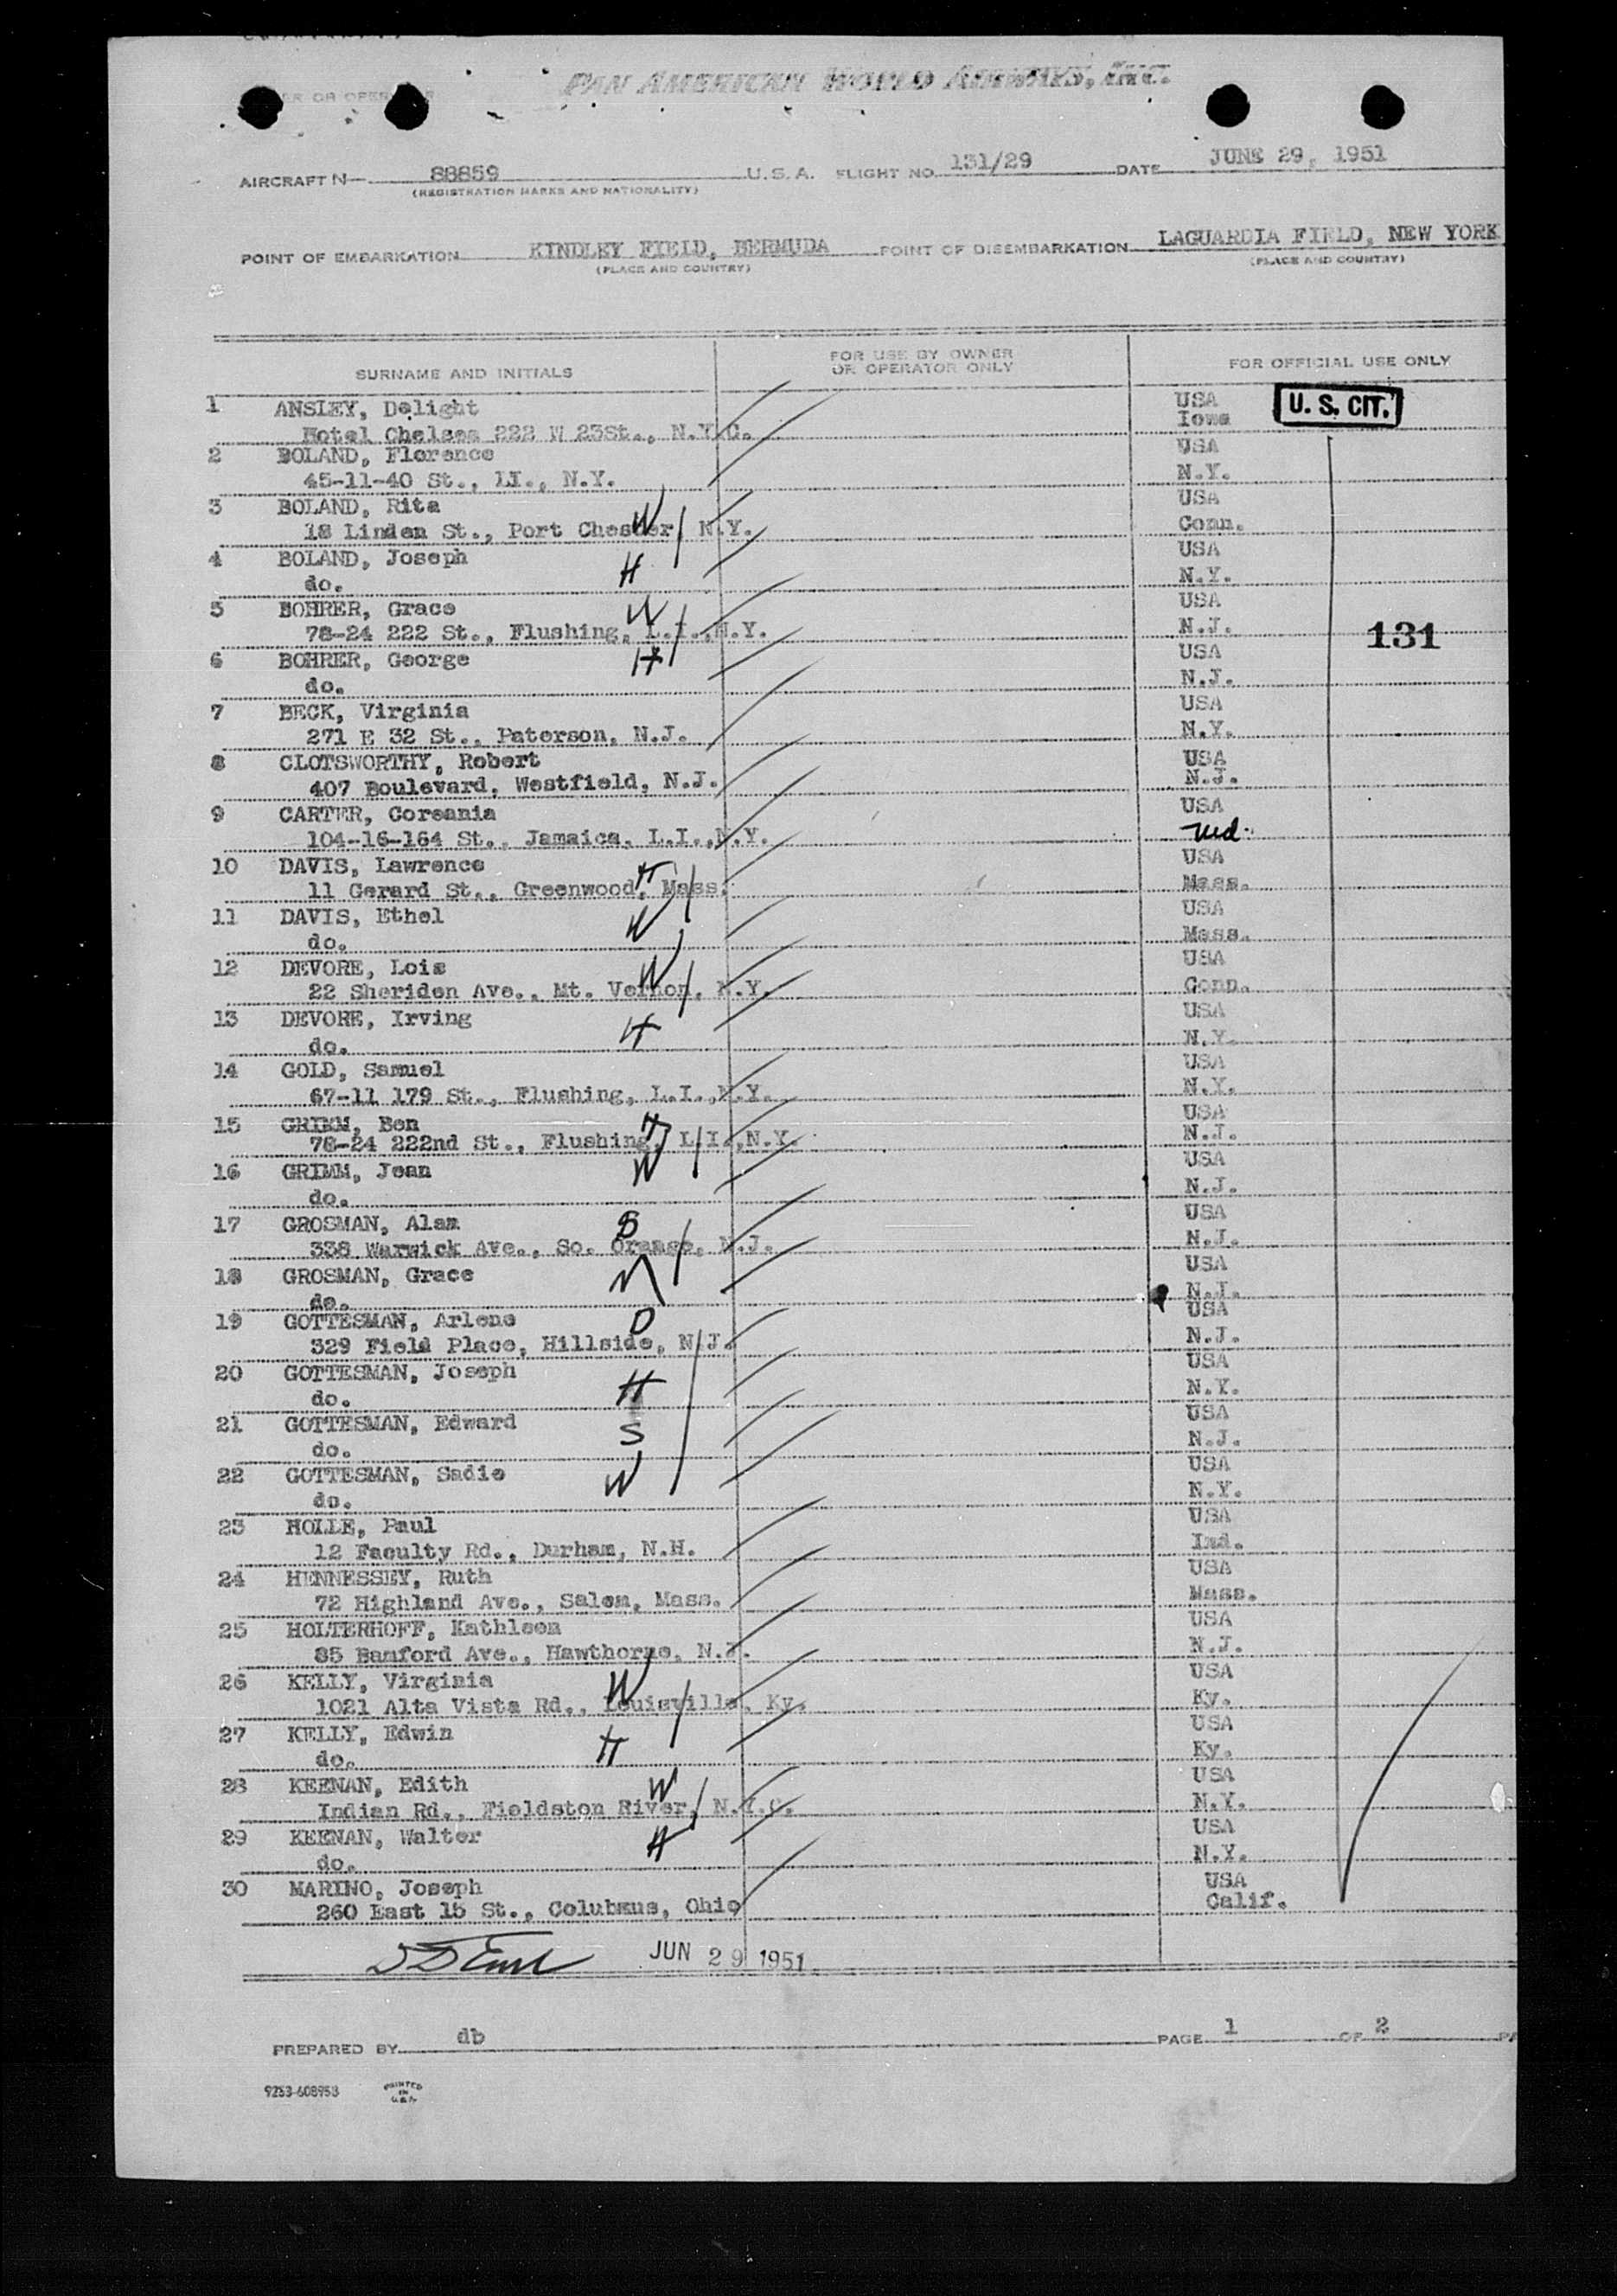 PAN AMERICAN WORLD AIRWAYS, INC.
OR OPERATOR
AIRCRAFT N 88859 U.S.A. FLIGHT NO. 131/29 DATE JUNE 29, 1951
(REGISTRATION MARKS AND NATIONALITY)
POINT OF EMBARKATION KINDLEY FIELD, BERMUDA POINT OF DISEMBARKATION LAGUARDIA FIELD, NEW YORK
(PLACE AND COUNTRY) (PLACE AND COUNTRY)
SURNAME AND INITIALS FOR USE BY OWNER OR OPERATOR ONLY FOR OFFICIAL USE ONLY
1 ANSLEY, Delight USA U. S. CIT.
Hotel Chelsea 222 W 23St., N.Y.C. Iowa
2 BOLAND, Florence USA
45-11-40 St., LI., N.Y. N.Y.
3 BOLAND, Rita W USA
18 Linden St., Port Chester, N.Y. Conn.
4 BOLAND, Joseph H USA
do. N.Y.
5 BOHRER, Grace W USA
78-24 222 St., Flushing, L.I.,N.Y. N.J. 131
6 BOHRER, George H USA
do. N.J.
7 BECK, Virginia USA
271 E 32 St., Paterson, N.J. N.Y.
8 CLOTSWORTHY, Robert USA
407 Boulevard, Westfield, N.J. N.J.
9 CARTER, Coreania USA
104-16-164 St., Jamaica, L.I.,N.Y. Md.
10 DAVIS, Lawrence H USA
11 Gerard St., Greenwood, Mass. Mass.
11 DAVIS, Ethel W USA
do. Mass.
12 DEVORE, Lois W USA
22 Sheriden Ave., Mt. Vernon, N.Y. Conn.
13 DEVORE, Irving H USA
do. N.Y.
14 GOLD, Samuel USA
67-11 179 St., Flushing, L.I.,N.Y. N.Y.
15 GRIMM, Ben H USA
78-24 222nd St., Flushing, L.I.,N.Y. N.J.
16 GRIMM, Jean W USA
do. N.J.
17 GROSMAN, Alan S USA
338 Warwick Ave., So. Orange, N.J. N.J.
18 GROSMAN, Grace M USA
do. N.J.
19 GOTTESMAN, Arlene D USA
329 Field Place, Hillside, N.J. N.J.
20 GOTTESMAN, Joseph H USA
do. N.Y.
21 GOTTESMAN, Edward S USA
do. N.J.
22 GOTTESMAN, Sadie W USA
do. N.Y.
23 HOLLE, Paul USA
12 Faculty Rd., Durham, N.H. Ind.
24 HENNESSEY, Ruth USA
72 Highland Ave., Salem, Mass. Mass.
25 HOLTERHOFF, Kathleen USA
85 Bamford Ave., Hawthorne, N.J. N.J.
26 KELLY, Virginia W USA
1021 Alta Vista Rd., Louisville, Ky. Ky.
27 KELLY, Edwin H USA
do. Ky.
28 KEENAN, Edith W USA
Indian Rd., Fieldston River, N.Y.C. N.Y.
29 KEENAN, Walter H USA
do. N.Y.
30 MARINO, Joseph USA
260 East 15 St., Colubmus, Ohio Calif.
JUN 29 1951
PREPARED BY db PAGE 1 OF 2
9253-608953 PRINTED IN U.S.A.